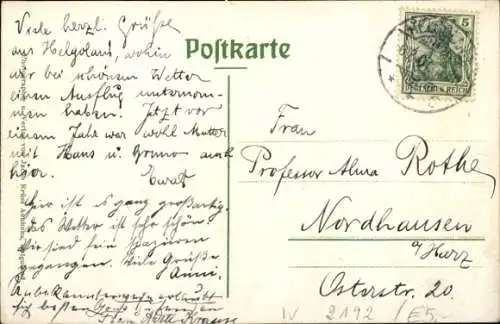 Viele herzl. Grüße
aus Helgoland, wohin
wir bei schönem Wetter
einen Ausflug unternom-
men haben. Jetzt vor
einem Jahr war wohl Mutter
mit Hans u. Bruno auch
hier.
Ewald
Hier ist es ganz großartig.
das Wetter ist sehr schön.
Wir sind fein spazieren
gegangen. Viele Grüße
Anni.
Unbekannterweise erlaubt
sich besten Gruß
Frau Krause
Postkarte
5
DEUTSCHES REICH
Frau
Professor Alma Rothe
Nordhausen
a/Harz
Osterstr. 20.
IV 2192 / E5,-